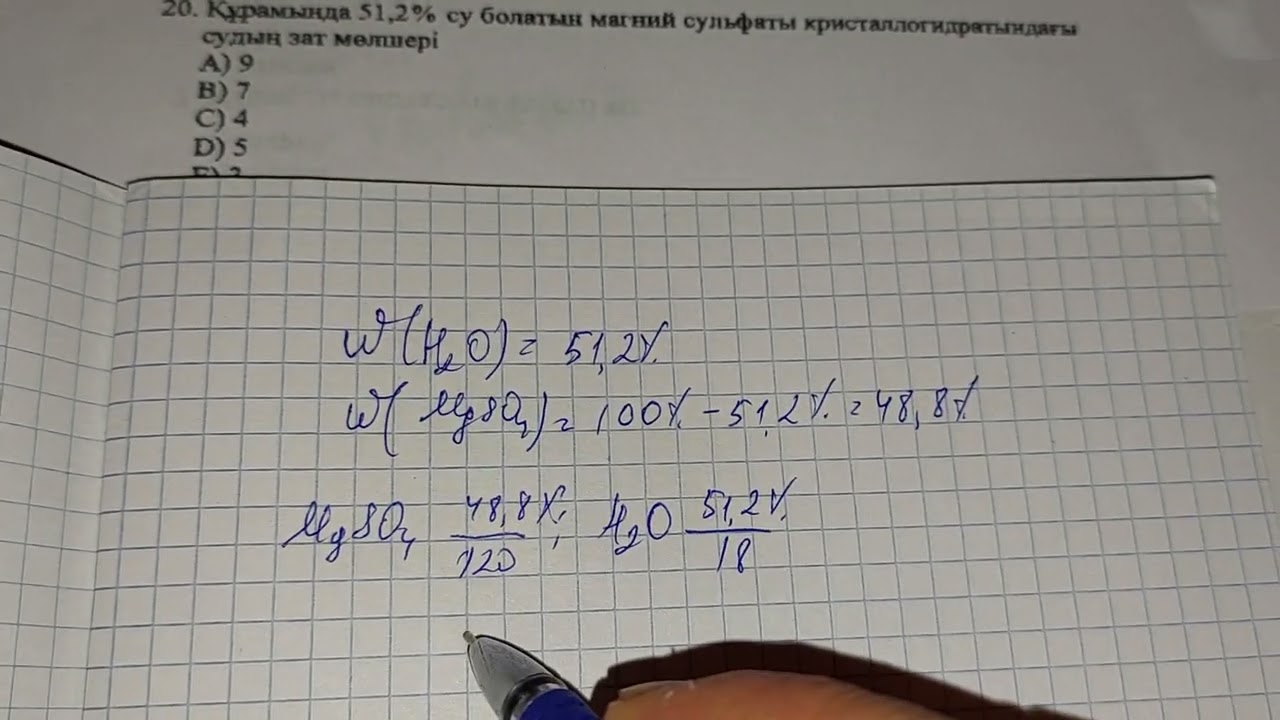 20. Құрамында 51,2% су болатын магний сульфаты кристаллогидратындағы
судың зат мөлшері
A) 9
B) 7
C) 4
D) 5
W(H₂O) = 51,2%
W(MgSO₄) = 100% - 51,2% = 48,8%
MgSO₄ 48,8%/120 ; H₂O 51,2%/18